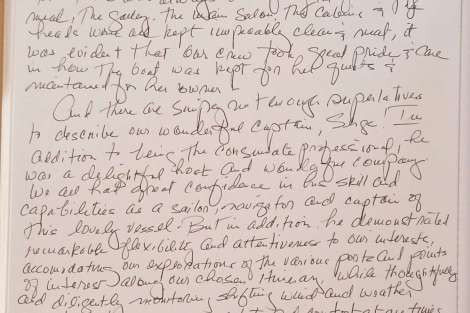 meal, The Galley, the main Salon, The Cabins & The
heads were all kept impeccably clean & neat, it
was evident that our crew took great pride & care
in how The boat was kept for her guests &
maintained for her owner!
And there are simply not enough superlatives
to describe our wonderful captain, Serge! In
addition to being The consumate professional, he
was a delightful host and wonderful company.
We all had great confidence in his skill and
capabilities as a sailor, navigator and captain of
This lovely vessel. But in addition he demonstrated
remarkable flexibility and attentiveness to our interests,
accomodating our explorations of the various ports and points
of interest along our chosen itinerary, while thoughtfully
and diligently monitoring shifting wind and weather
at all times